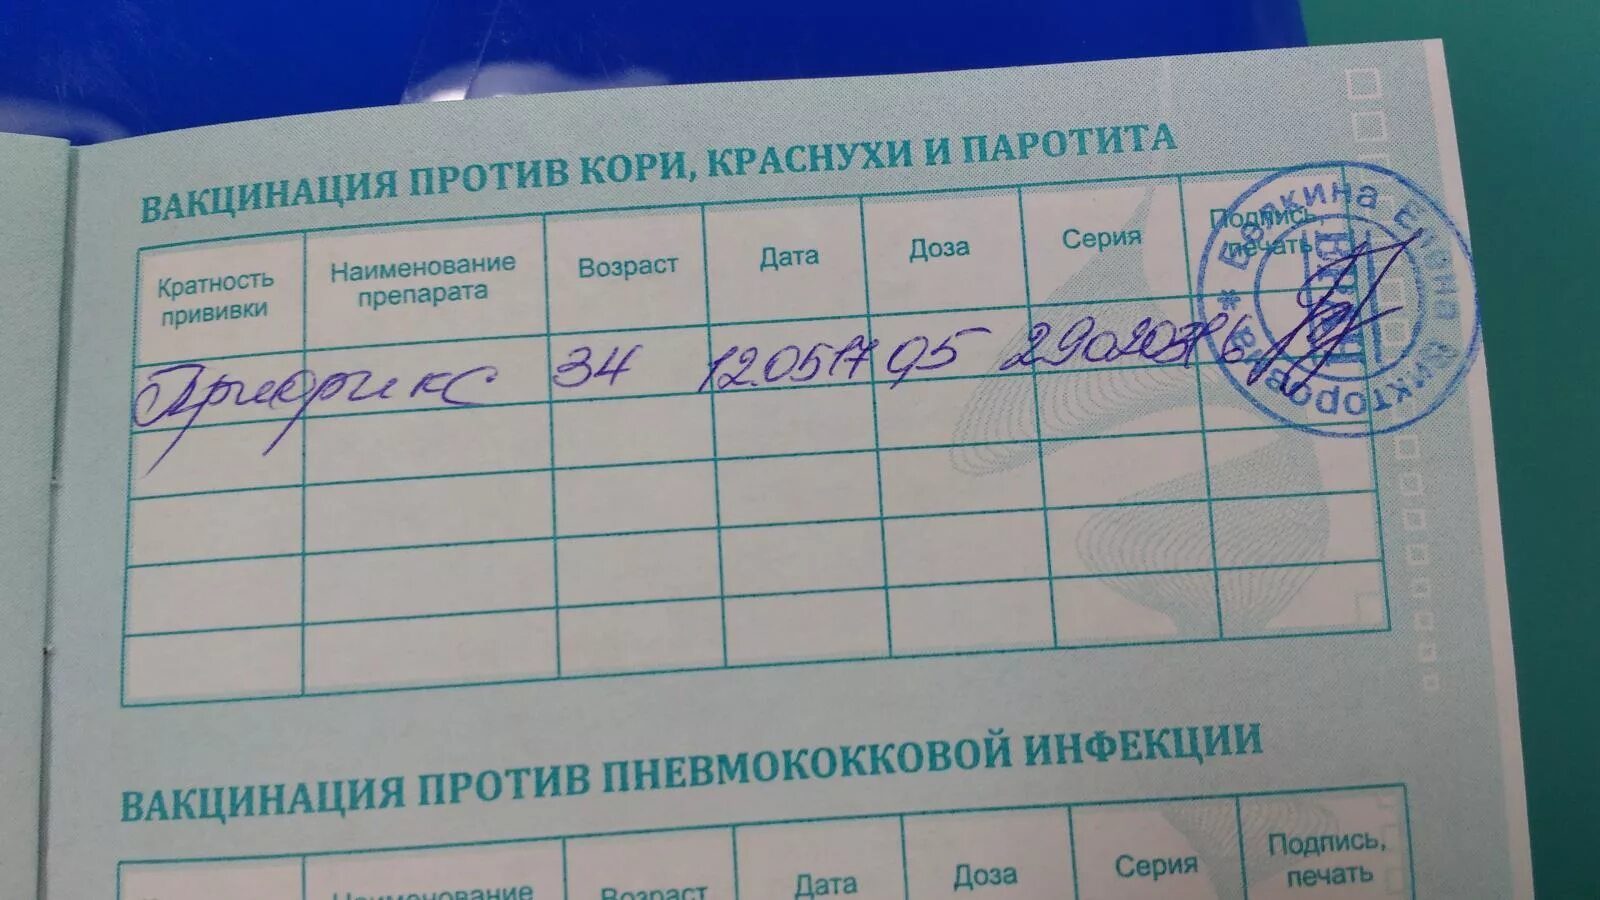 ВАКЦИНАЦИЯ ПРОТИВ КОРИ, КРАСНУХИ И ПАРОТИТА
Кратность прививки
Наименование препарата
Возраст
Дата
Доза
Серия
Подпись, печать
Приорикс 34 12.05.17 0,5
Елена Викторовна
ВАКЦИНАЦИЯ ПРОТИВ ПНЕВМОКОККОВОЙ ИНФЕКЦИИ
Наименование
Возраст
Дата
Доза
Серия
Подпись, печать